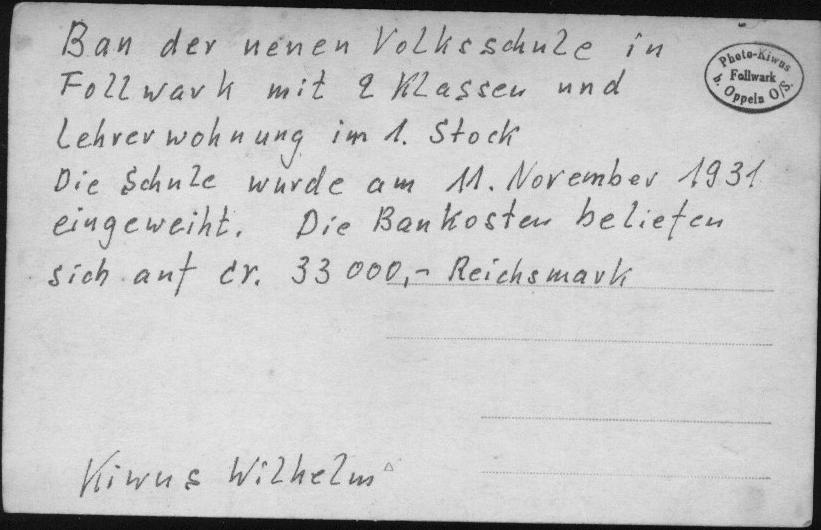 Bau der neuen Volksschule in
Follwark mit 2 Klassen und
Lehrerwohnung im 1. Stock
Die Schule wurde am 11. November 1931
eingeweiht. Die Baukosten beliefen
sich auf cr. 33 000,- Reichsmark
Kiwus Wilhelm
Photo-Kiwus
Follwark
b. Oppeln O/S.